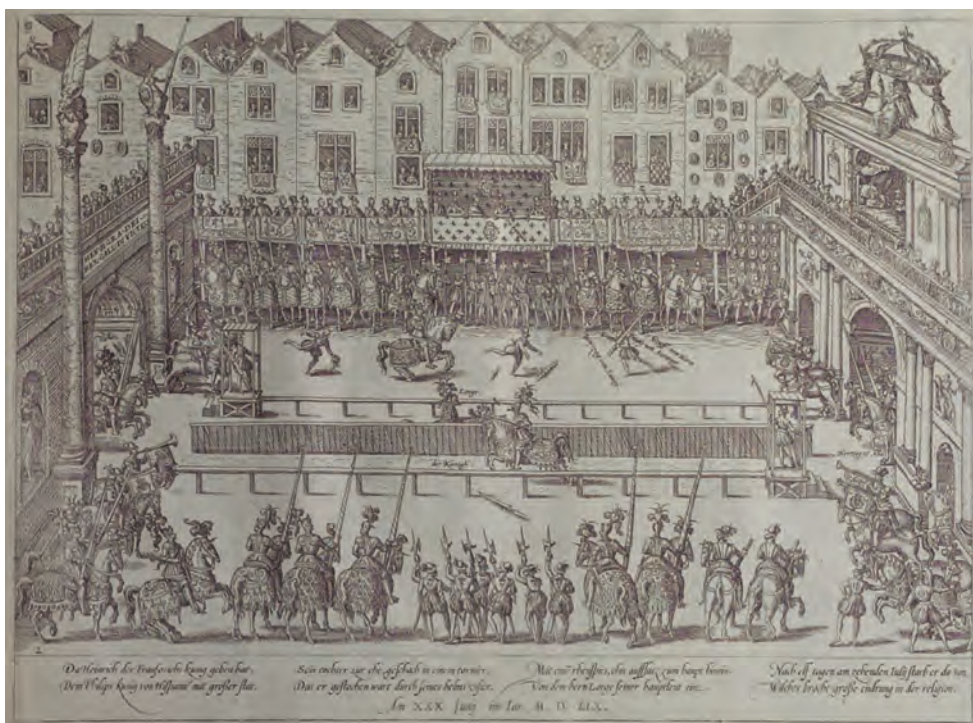 Lorge
der Kunigk
2
Da Heinrich der kunig geben hat,
Dem Philips kunig von Hispani mit großer stat,
Sein tochter zur ehe, geschach in einem tornir,
Das er gestochen wart durch seines helms visir,
Mit zum haupt hinein
Von dem hern Lorge seiner hauptleut ein.
Nach elf tagen am zehenden Julij starb er da von,
Welches brachte große endrung in der religion.
An XXX Junij im Iar M. D. LIX.